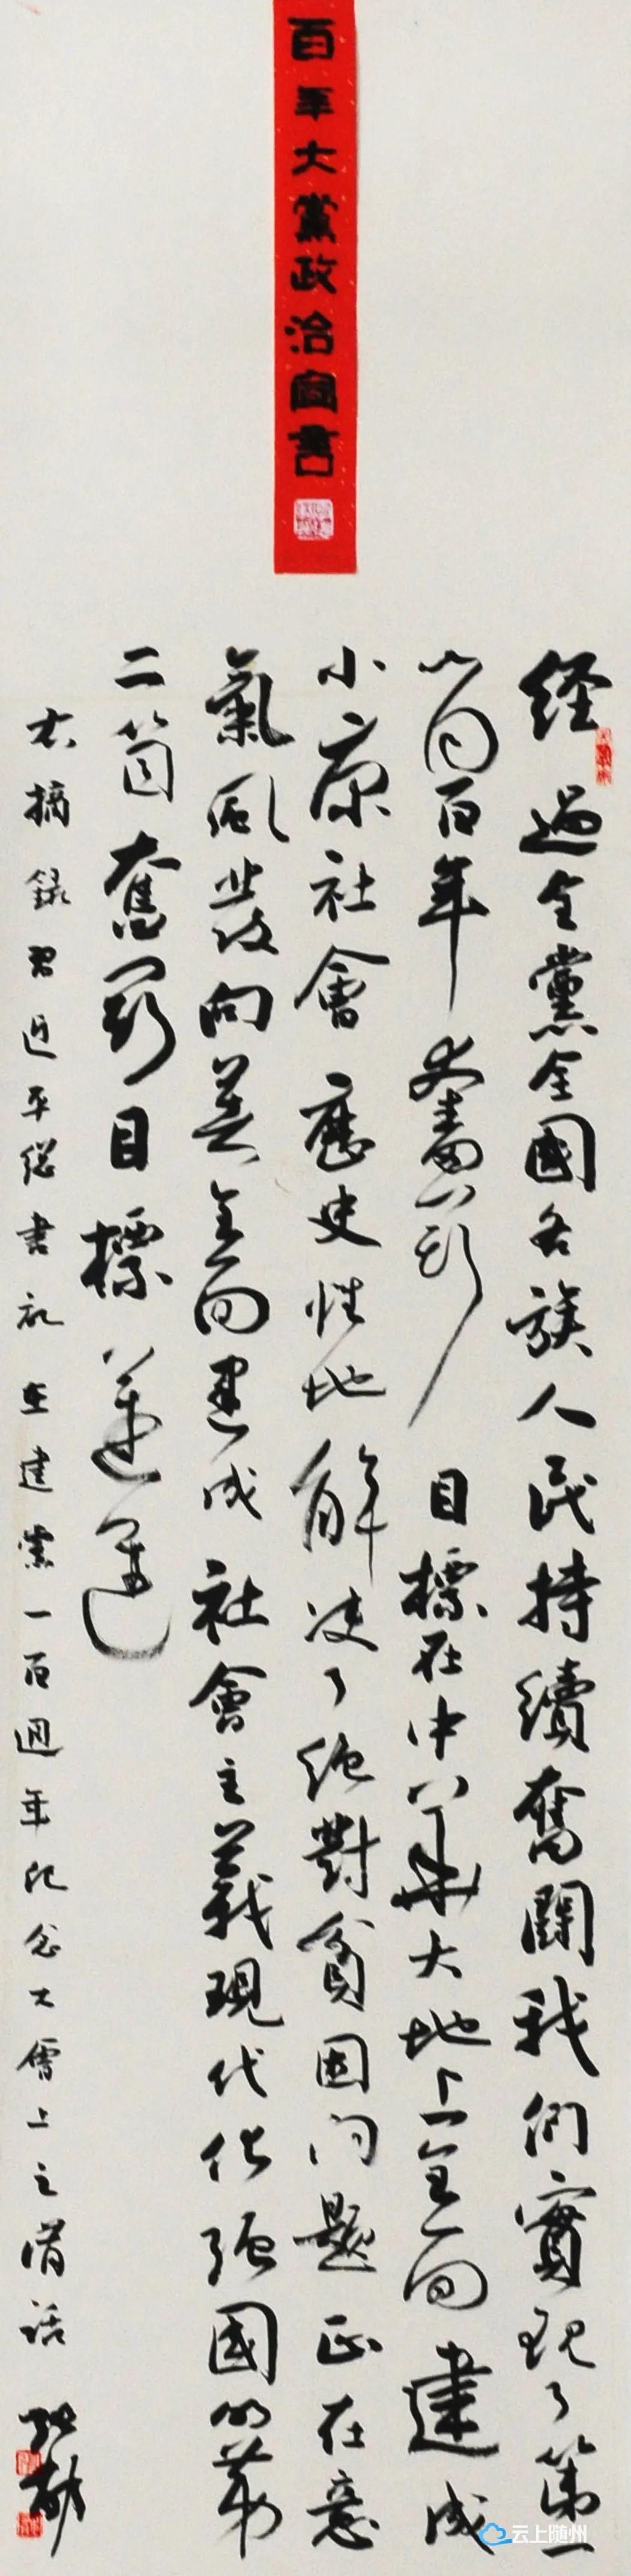 百年大黨政治宣書
经過全黨全國各族人民持續奮鬪我們實现了第一
个百年奮鬥目標在中華大地上全面建成
小康社會歷史性地解决了绝對貧困问题正在意
氣風發向着全面建成社會主義現代化强國的第
二箇奮鬥目標邁進
右摘錄習近平總書记在建黨一百週年纪念大會上之讲话
云上随州